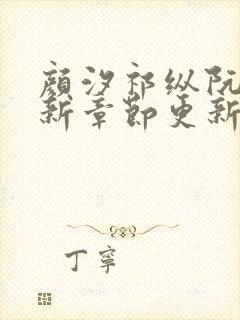 顾汐祁纵阮
新章节更新
丁寧